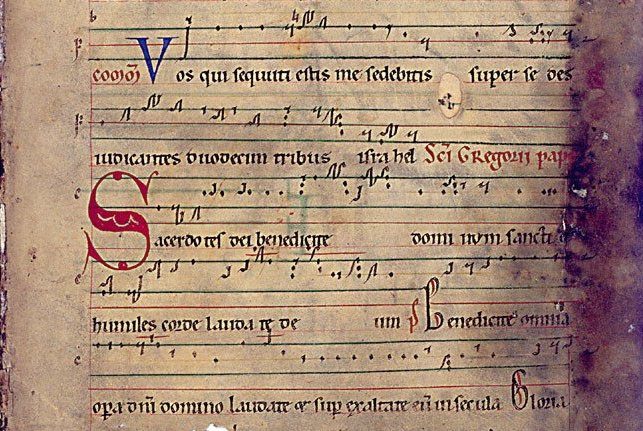 com̄o Vos qui sequuti estis me sedebitis super sedes
iudicantes duodecim tribus israhel Scī Gregorii pap
Sacerdotes dei benedicite dominum sancti
humiles corde laudate deum p̄ Benedicite omnia
opera dn̄i domino laudate et sup exaltate eū in secula Gloria